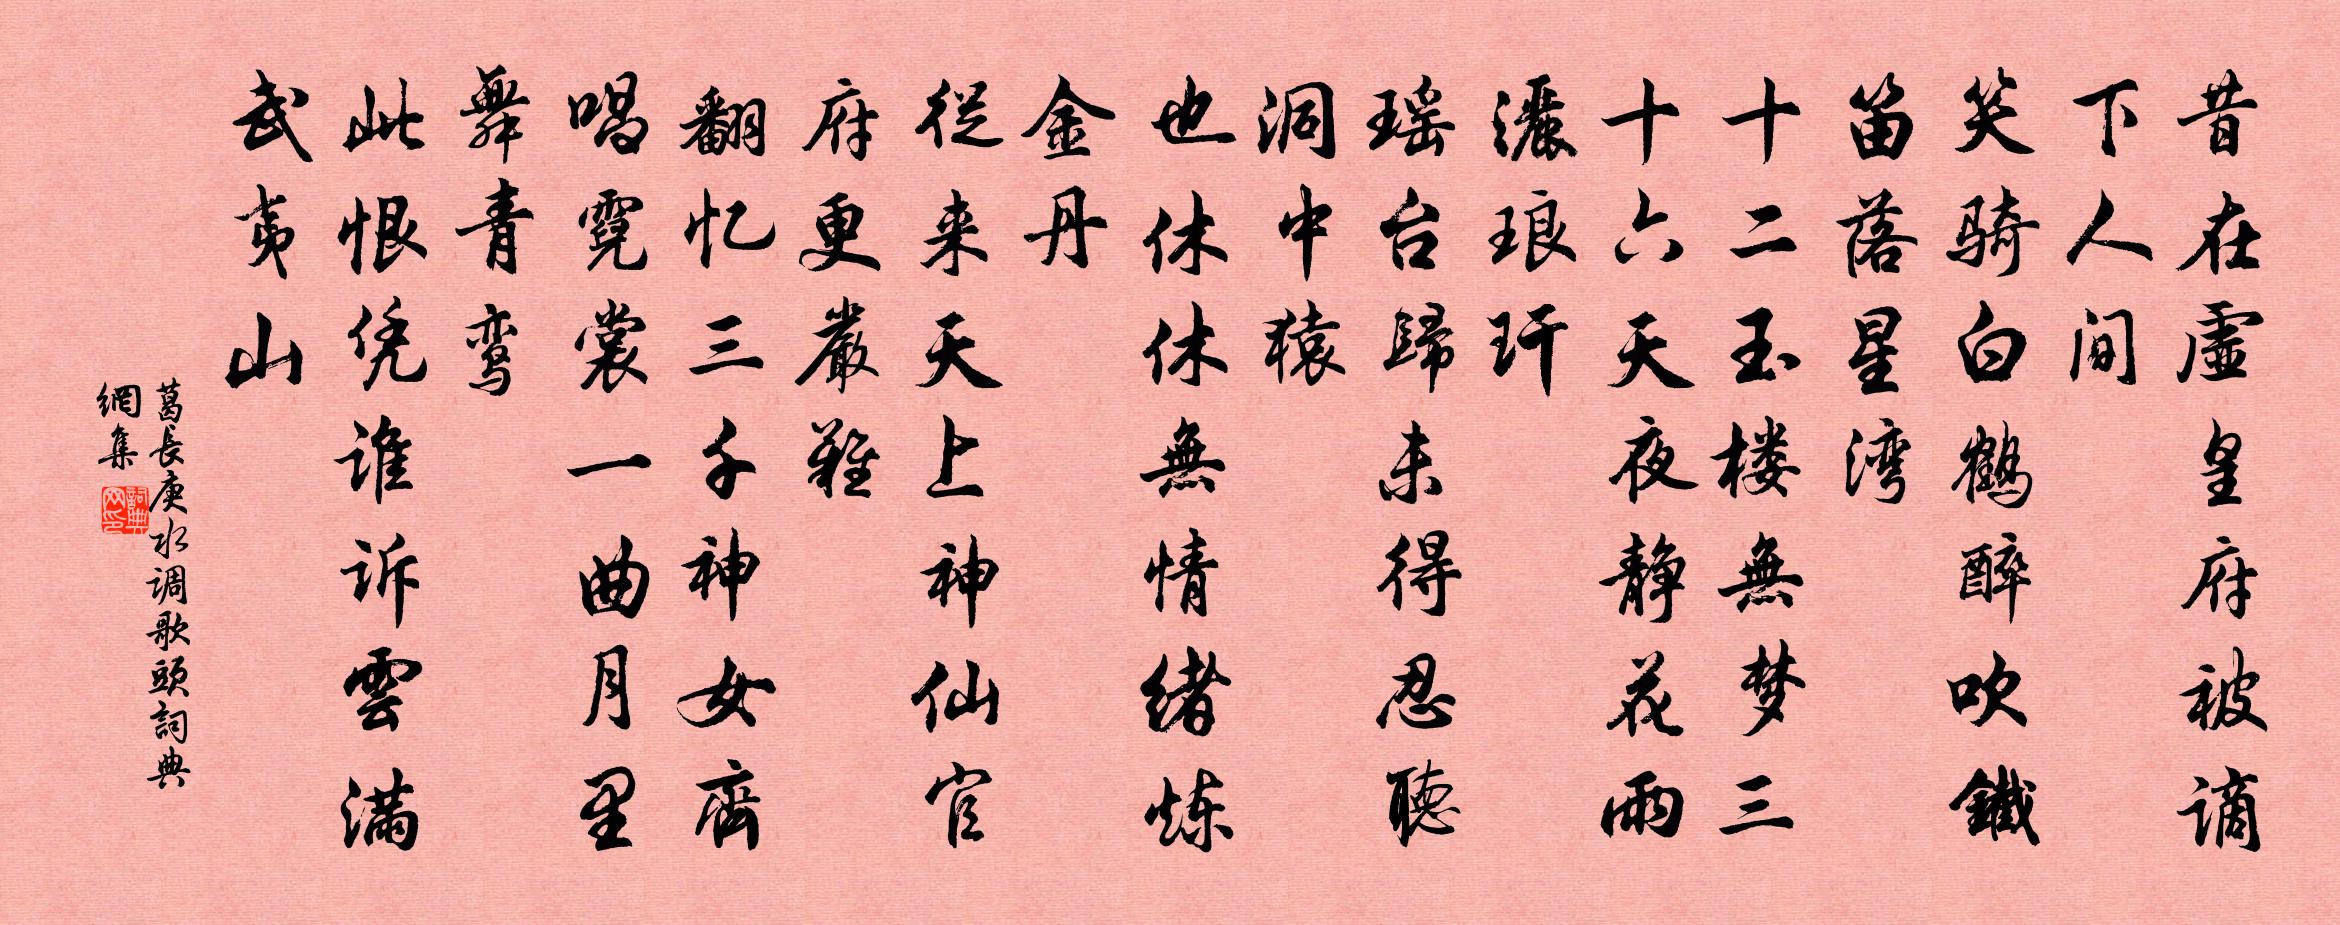 昔在虛皇府被谪
下人间
笑骑白鹤醉吹鐵
笛落星湾
十二玉楼無梦三
十六天夜静花雨
灑琅玕
瑶台歸未得忍聽
洞中猿
也休休無情緒炼
金丹
從来天上神仙官
府更嚴難
翻忆三千神女齊
唱霓裳一曲月里
舞青鸾
此恨凭谁诉雲满
武夷山
葛長庚水调歌頭詞典
網集
詞典
网印